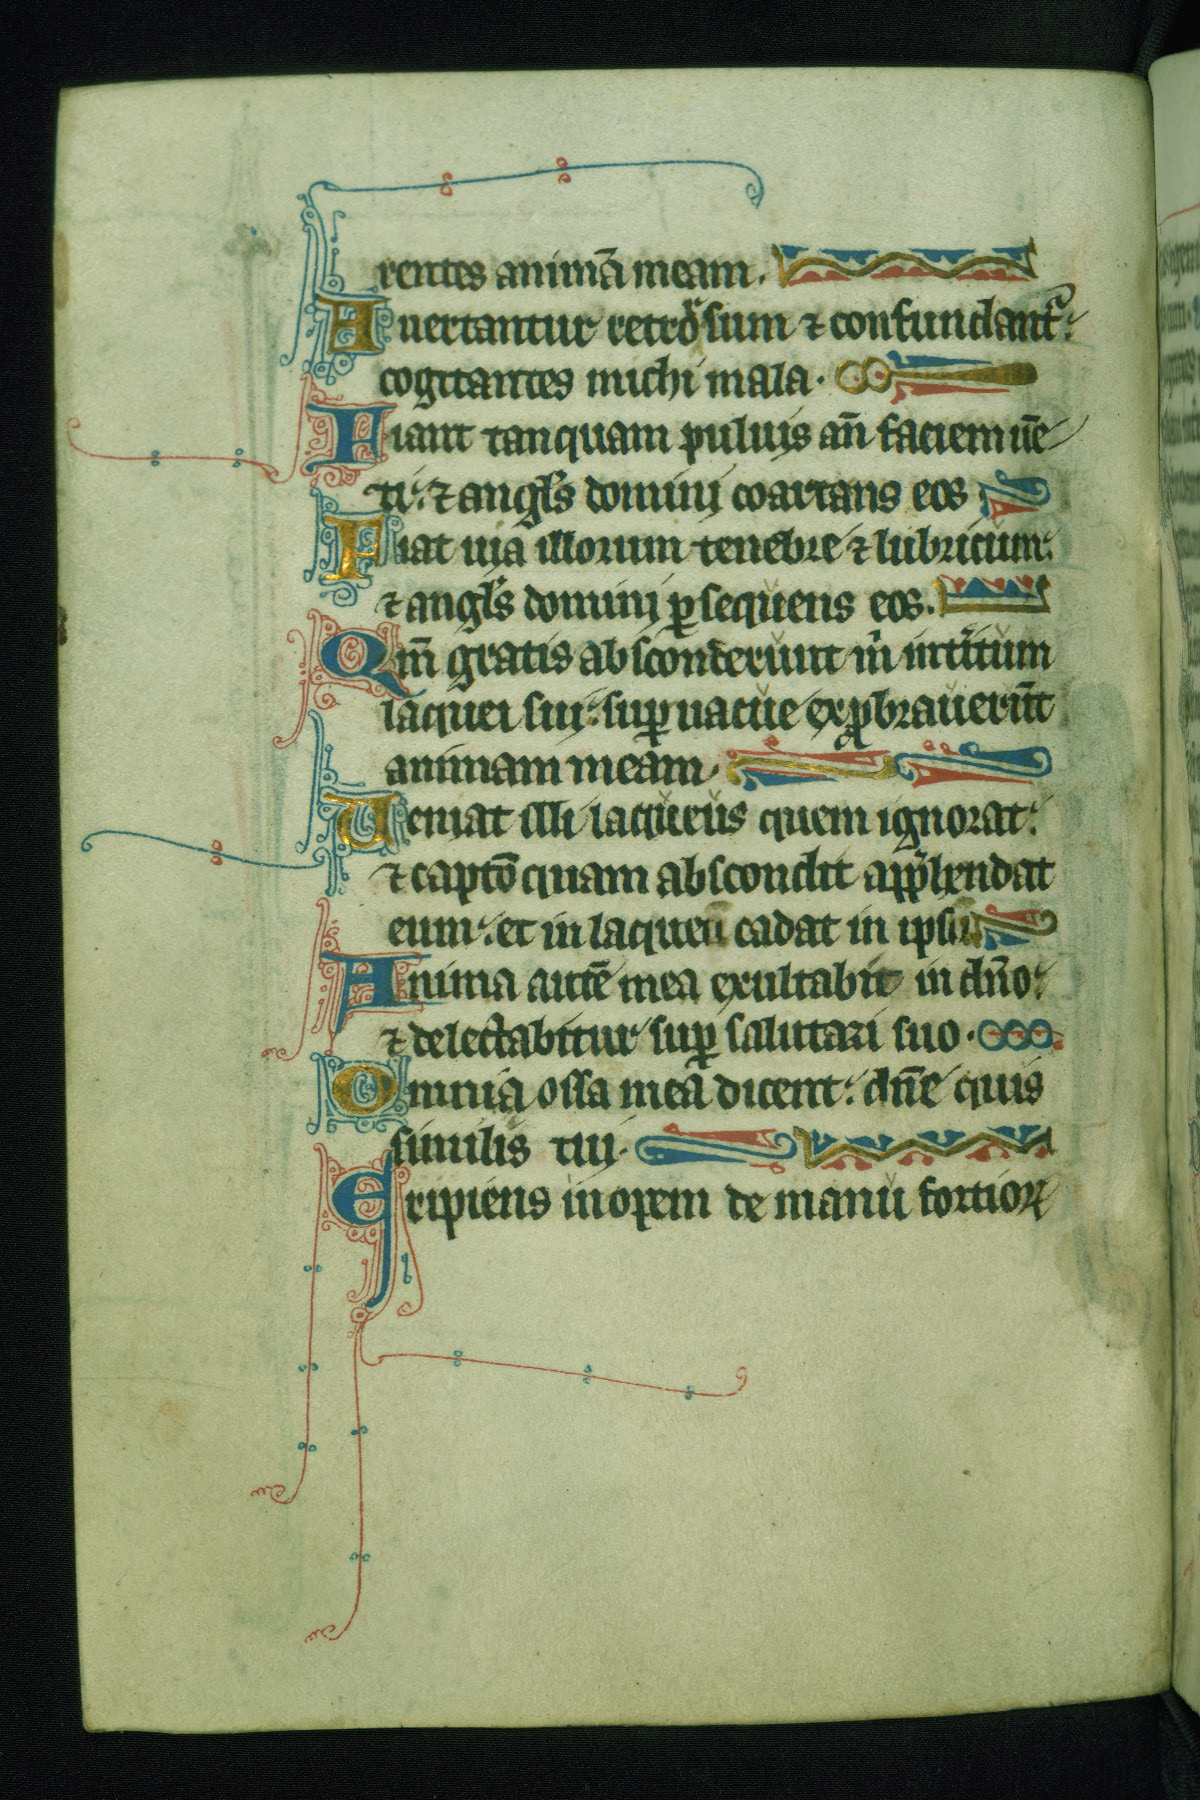 rentes animā meam.
Auertantur retrorsum ⁊ confundant᷑:
cogitantes michi mala.
Fiant tanquam puluis añ faciem uē
ti: ⁊ angl̄s domini coartans eos
Fiat uia illorum tenebre ⁊ lubricum:
⁊ angl̄s domini ꝑsequens eos.
Qm̄ gratis absconderunt m̄ interitum
laquei sui: suꝑuacue exꝓbrauerūt
animam meam.
Ueniat illi laqueus quem ignorat:
⁊ captō quam abscondit app̄hendat
eum: et in laqueū cadat in ipsū
Anima autē mea exultabit in dño:
⁊ delectabitur suꝑ salutari suo.
Omnia ossa mea dicent: dñe quis
similis tui.
Eripiens inopem de manu fortioꝝ